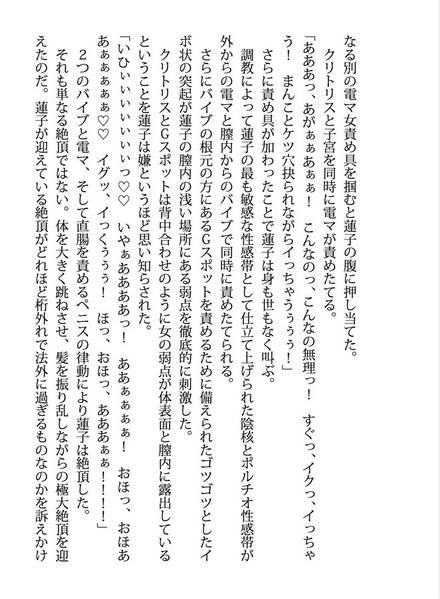 なる別の電マ女責め具を掴むと蓮子の腹に押し当てた。
クリトリスと子宮を同時に電マが責めたてる。
「あああっ、あがぁぁあぁぁ！　こんなのっ、こんなの無理っ！　すぐっ、イクっ、イっちゃ
う！　まんことケツ穴抉られながらイっちゃうぅぅぅ！」
さらに責め具が加わったことで蓮子は身も世もなく叫ぶ。
調教によって蓮子の最も敏感な性感帯として仕立て上げられた陰核とポルチオ性感帯が
外からの電マと膣内からのバイブで同時に責めたてられる。
さらにバイブの根元の方にあるＧスポットを責めるために備えられたゴツゴツとしたイ
ボ状の突起が蓮子の膣内の浅い場所にある弱点を徹底的に刺激した。
クリトリスとＧスポットは背中合わせのように女の弱点が体表面と膣内に露出している
ということを蓮子は嫌というほど思い知らされた。
「いひぃぃぃぃぃぃぃっ♡♡　いやぁああああっ！　ああぁぁぁぁ！　おほっ、おほあ
あぁぁぁぁぁ♡♡　イグッ、イっくぅぅぅ！　ほっ、おほっ、あああぁぁ！！！！」
２つのバイブと電マ、そして直腸を責めるペニスの律動により蓮子は絶頂した。
それも単なる絶頂ではない。体を大きく跳ねさせ、髪を振り乱しながらの極大絶頂を迎
えたのだ。蓮子が迎えている絶頂がどれほど桁外れで法外に過ぎるものなのかを訴えかけ